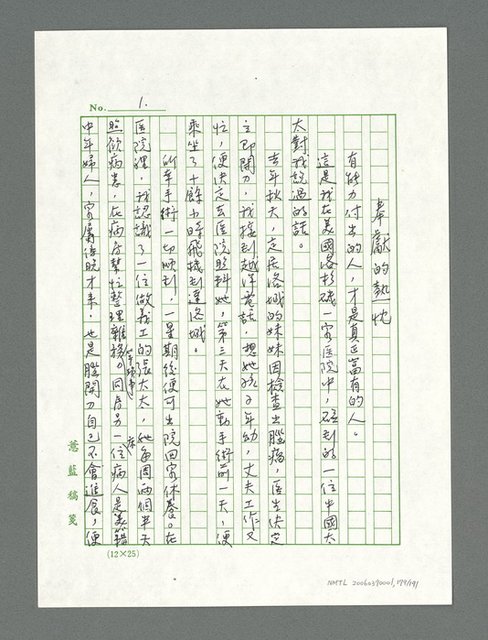 No. 1.
奉獻的熱忱
有能力付出的人，才是真正富有的人。
這是我在美國洛杉磯一家医院中，碰到的一位中國太
太對我說過的話。
去年秋天，定居洛城的妹妹因檢查出腦瘤，医生決定
立即開刀，我接到越洋電話，想她孩子年幼，丈夫工作又
忙，便決定去医院照料她，第三天在她動手術前一天，便
乘坐了十餘小時飛機到達洛城。
所幸手術一切順利，一星期後便可出院回家休養。在
医院裡，我認識了一位做義工的張太太，她每周兩個半天
照顧病患，在病房幫忙整理雜務。同房另一位病人是美籍
中年婦人，家屬傍晚才來，也是腦開刀自己不會進食，便
慧藍稿箋
(12×25)
NMTL 20060390001,179/191